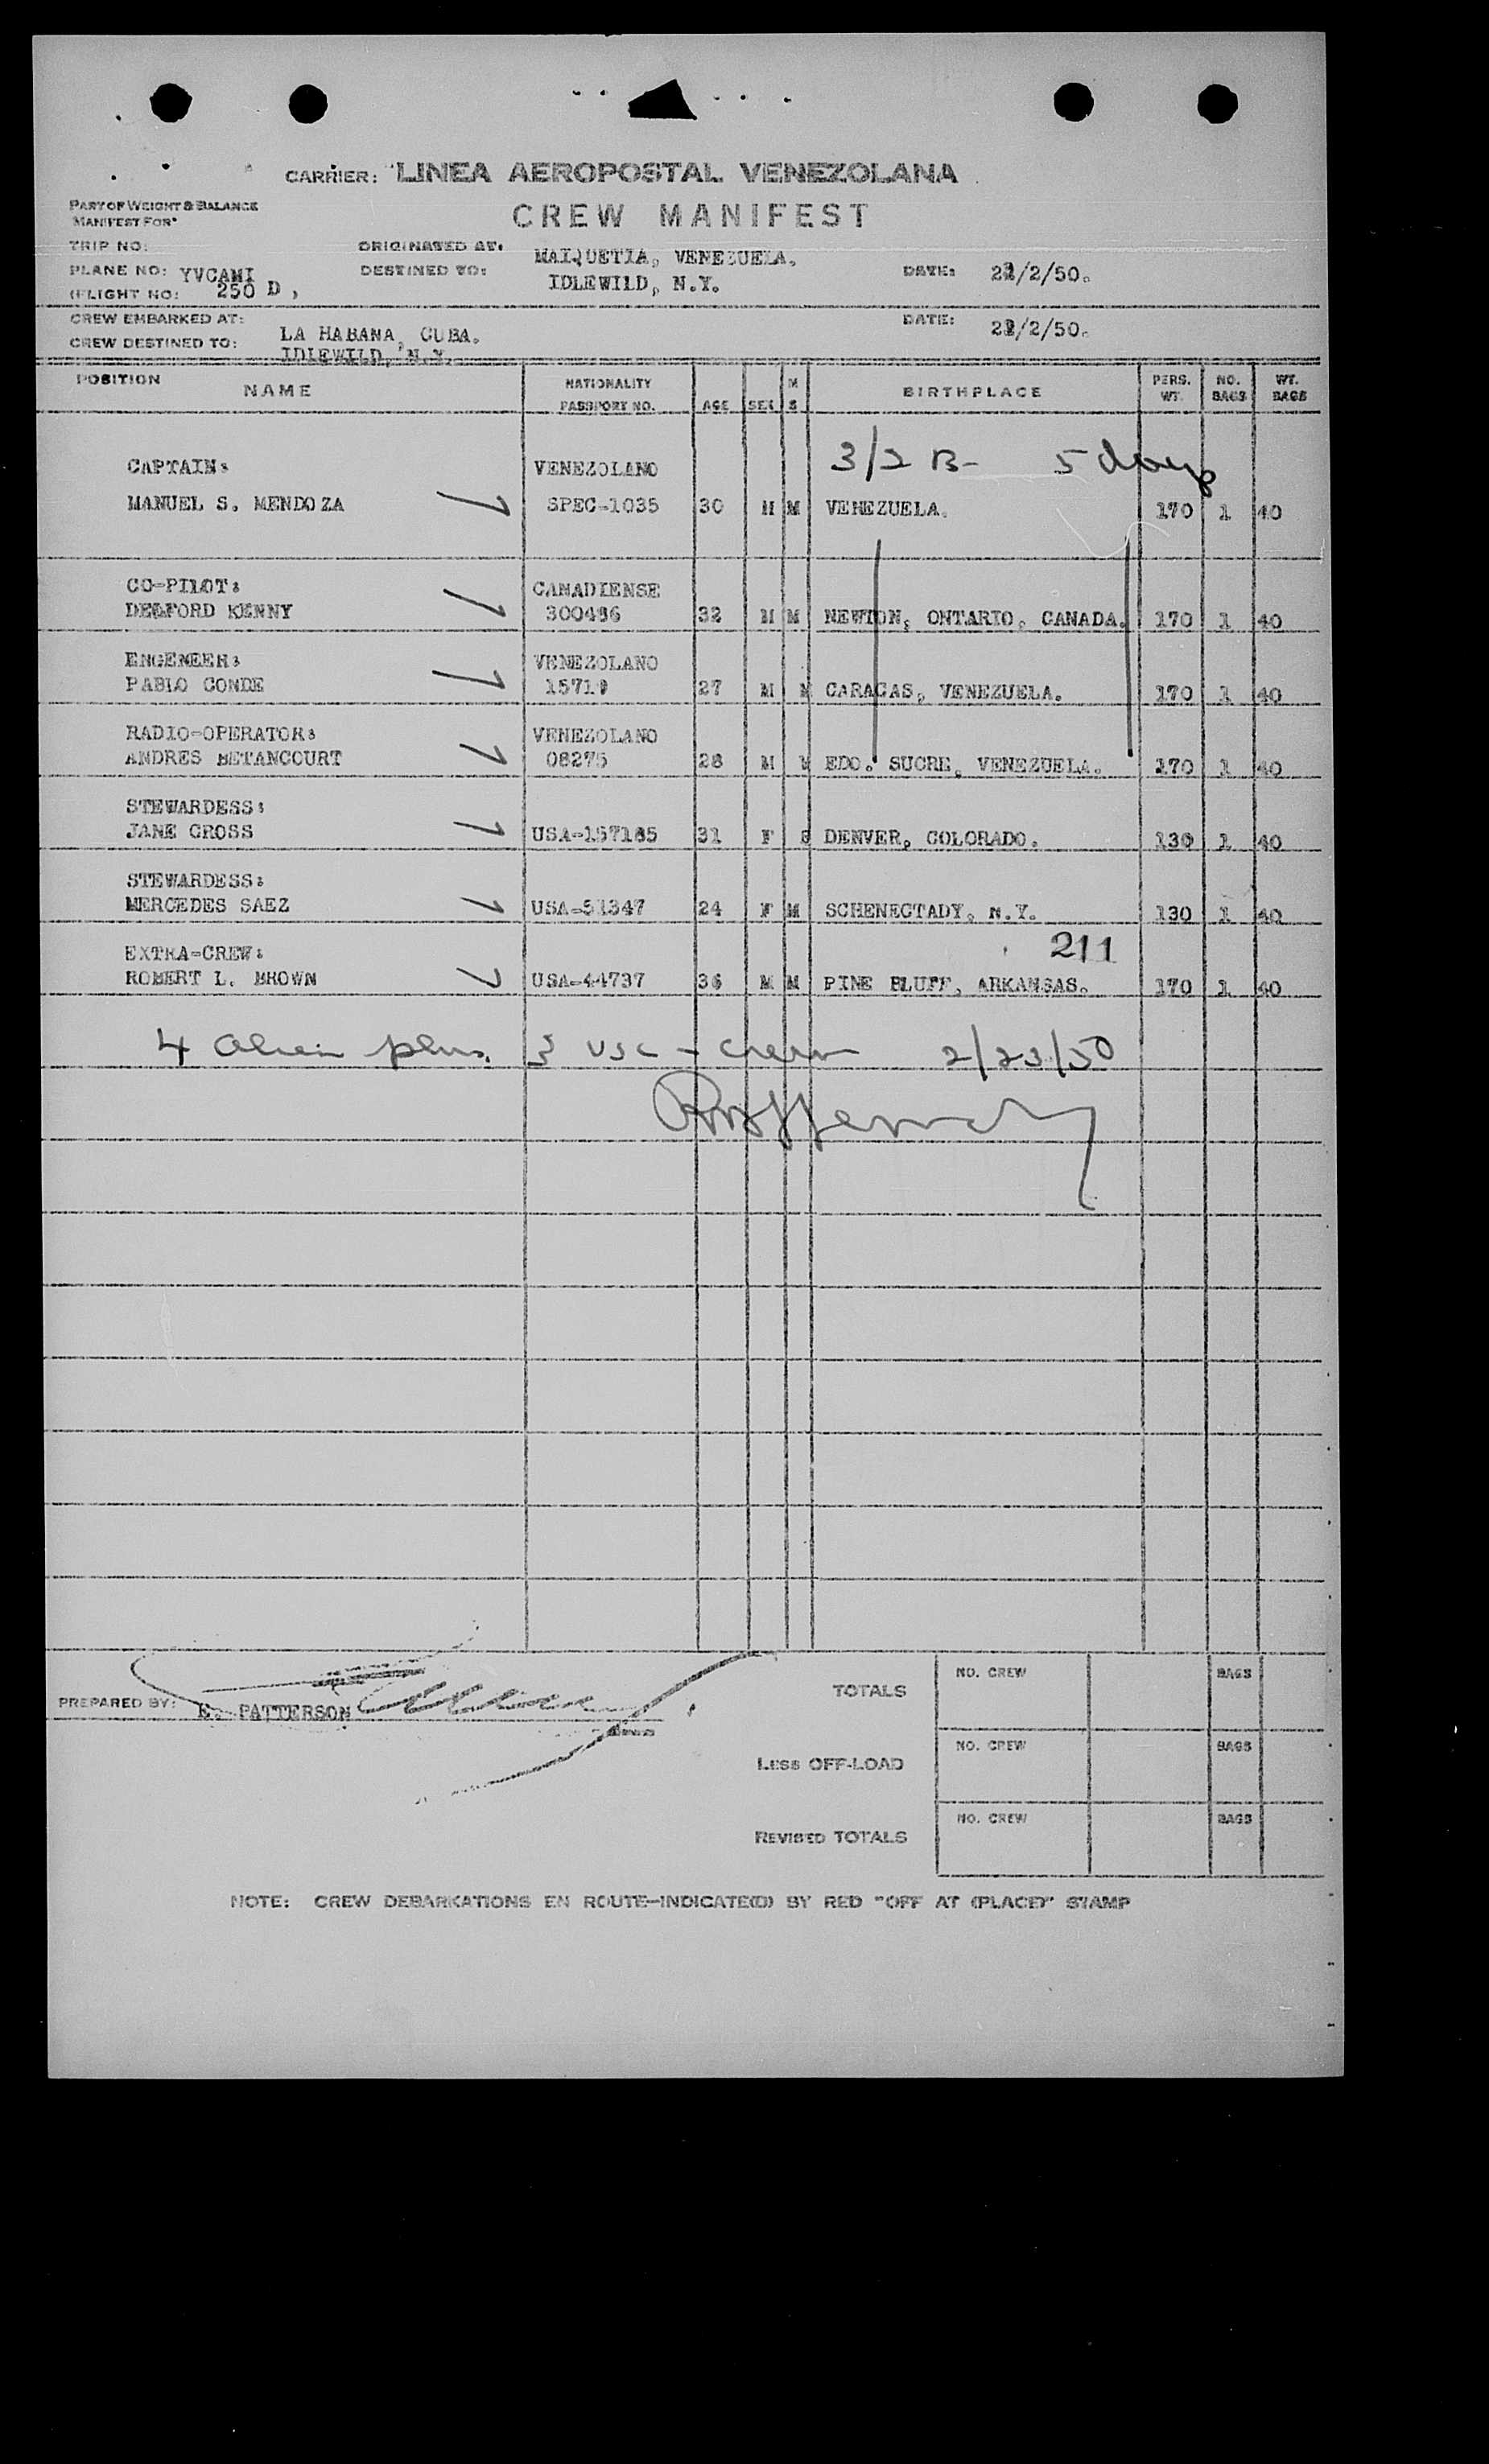 CARRIER: LINEA AEROPOSTAL VENEZOLANA
PART OF WEIGHT & BALANCE
MANIFEST FOR
CREW MANIFEST
TRIP NO:
ORIGINATED AT: MAIQUETIA, VENEZUELA.
PLANE NO: YVCAMI
DESTINED TO: IDLEWILD, N.Y.
DATE: /2/50.
(FLIGHT NO: 250 D,
CREW EMBARKED AT: LA HABANA, CUBA.
DATE: /2/50.
CREW DESTINED TO: IDLEWILD, N.Y.
POSITION NAME NATIONALITY PASSPORT NO. AGE SEX M S BIRTHPLACE PERS. WT. NO. BAGS WT. BAGS
3/2 B- 5 days
CAPTAIN: VENEZOLANO
MANUEL S. MENDOZA SPEC-1035 30 M M VENEZUELA. 170 1 40
CO-PILOT: CANADIENSE
DELFORD KENNY 300486 32 M M NEWTON, ONTARIO, CANADA. 170 1 40
ENGENEER: VENEZOLANO
PABLO CONDE 15719 27 M M CARACAS, VENEZUELA. 170 1 40
RADIO-OPERATOR: VENEZOLANO
ANDRES BETANCOURT 08275 28 M M EDO. SUCRE, VENEZUELA. 170 1 40
STEWARDESS:
JANE CROSS USA-157185 31 F S DENVER, COLORADO. 130 1 40
STEWARDESS:
MERCEDES SAEZ USA-51347 24 F M SCHENECTADY, N.Y. 130 1 40
EXTRA-CREW: 211
ROBERT L. BROWN USA-44737 36 M M PINE BLUFF, ARKANSAS. 170 1 40
4 alien plus 3 USC - crew 2/23/50
NO. CREW BAGS
PREPARED BY: E. PATTERSON
TOTALS
NO. CREW BAGS
LESS OFF-LOAD
NO. CREW BAGS
REVISED TOTALS
NOTE: CREW DEBARKATIONS EN ROUTE—INDICATE(D) BY RED "OFF AT (PLACE)" STAMP